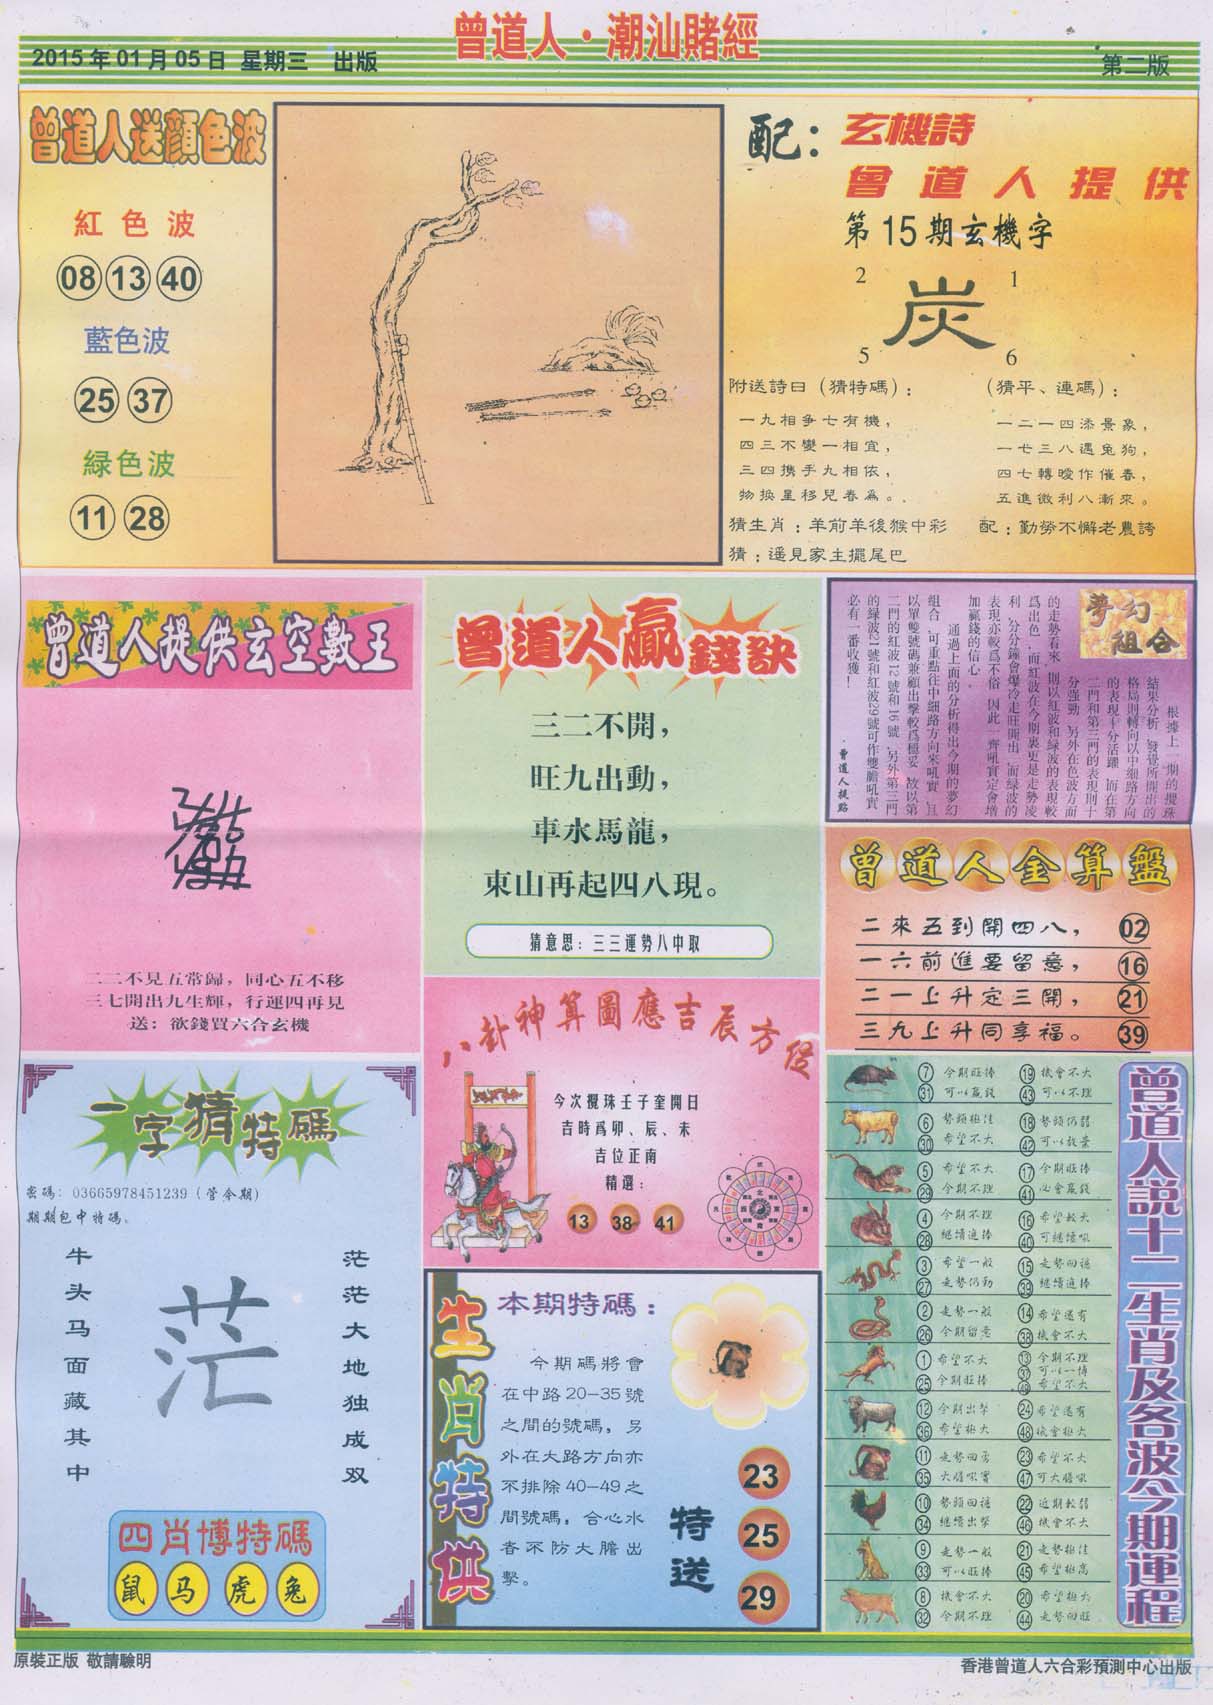 曾道人·潮汕賭經
2015年01月05日 星期三 出版
第二版
曾道人送顔色波
紅色波
08 13 40
藍色波
25 37
緑色波
11 28
配：玄機詩
曾道人提供
第15期玄機字
2 1
炭
5 6
附送詩曰（猜特碼）：
一九相爭七有機，
四三不變一相宜，
三四携手九相依，
物换星移兒春爲。
（猜平、連碼）：
一二一四添景象，
一七三八遇兔狗，
四七轉曖作催春，
五進微利八漸來。
猜生肖：羊前羊後猴中彩
配：勤勞不懈老農誇
猜：遥見家主擺尾巴
曾道人提供玄空數王
二二不見五常歸，同心五不移
三七開出九生輝，行運四再見
送：欲錢買六合玄機
曾道人贏錢訣
三二不開，
旺九出動，
車水馬龍，
東山再起四八現。
猜意思：三三運勢八中取
夢幻
組合
根據上一期的攪珠
結果分析，發覺所開出的
格局則轉向以中細路方向
的表現十分活躍，而在第
二門和第三門的表現則十
分強勁，另外在色波方面
的走勢看來，則以紅波和綠波的表現較
爲出色，而紅波在今期裏更是走勢凌
利，分分鐘會爆冷走旺開出，而綠波的
表現亦較爲不俗，因此一齊吼實定會增
加贏錢的信心。
通過上面的分析得出今期的夢幻
組合，可重點往中細路方向來吼實，且
以單雙號碼兼顧出擊較爲穩妥，故以第
二門的紅波12號和16號，另外第三門
的綠波21號和紅波29號可作雙膽吼實
必有一番收獲！
·曾道人提路
曾道人金算盤
二來五到開四八， 02
一六前進要留意， 16
二一上升定三開， 21
三九上升同享福。 39
八卦神算圖應吉辰方位
今次攪珠壬子奎開日
吉時爲卯、辰、未
吉位正南
精選：
13 38 41
一字猜特碼
密碼：03665978451239（管令期）
期期包中特碼。
牛头马面藏其中
茫
茫茫大地独成双
四肖博特碼
鼠 马 虎 兔
生肖特供
本期特碼：
今期碼將會
在中路20-35號
之間的號碼，另
外在大路方向亦
不排除40-49之
間號碼，合心水
者不防大膽出
擊。
特送
23
25
29
曾道人説十二生肖及各波今期運程
7 今期旺捧 19 機會不大
31 可以贏錢 43 可以不理
6 勢頭極佳 18 勢頭仍弱
30 希望不大 42 可以放棄
5 希望不大 17 今期旺捧
29 今期不理 41 必會贏錢
4 今期不理 16 希望較大
28 繼續追捧 40 可繼續吼
3 希望一般 15 走勢回穩
27 走勢仍勁 39 繼續追捧
2 走勢一般 14 希望還有
26 今期留意 38 機會不大
1 希望不大 13 今期不理
25 今期旺捧 37 可以一博
49 希望不大
12 今期出擊 24 希望還有
36 希望極大 48 機會極大
11 走勢回勇 23 希望不大
35 大膽吼實 47 可大膽吼
10 勢頭回穩 22 近期較弱
34 繼續出擊 46 機會不大
9 走勢一般 21 走勢極佳
33 可以旺捧 45 希望極高
8 機會不大 20 希望極大
32 今期不理 44 走勢回旺
原裝正版 敬請驗明
香港曾道人六合彩預測中心出版